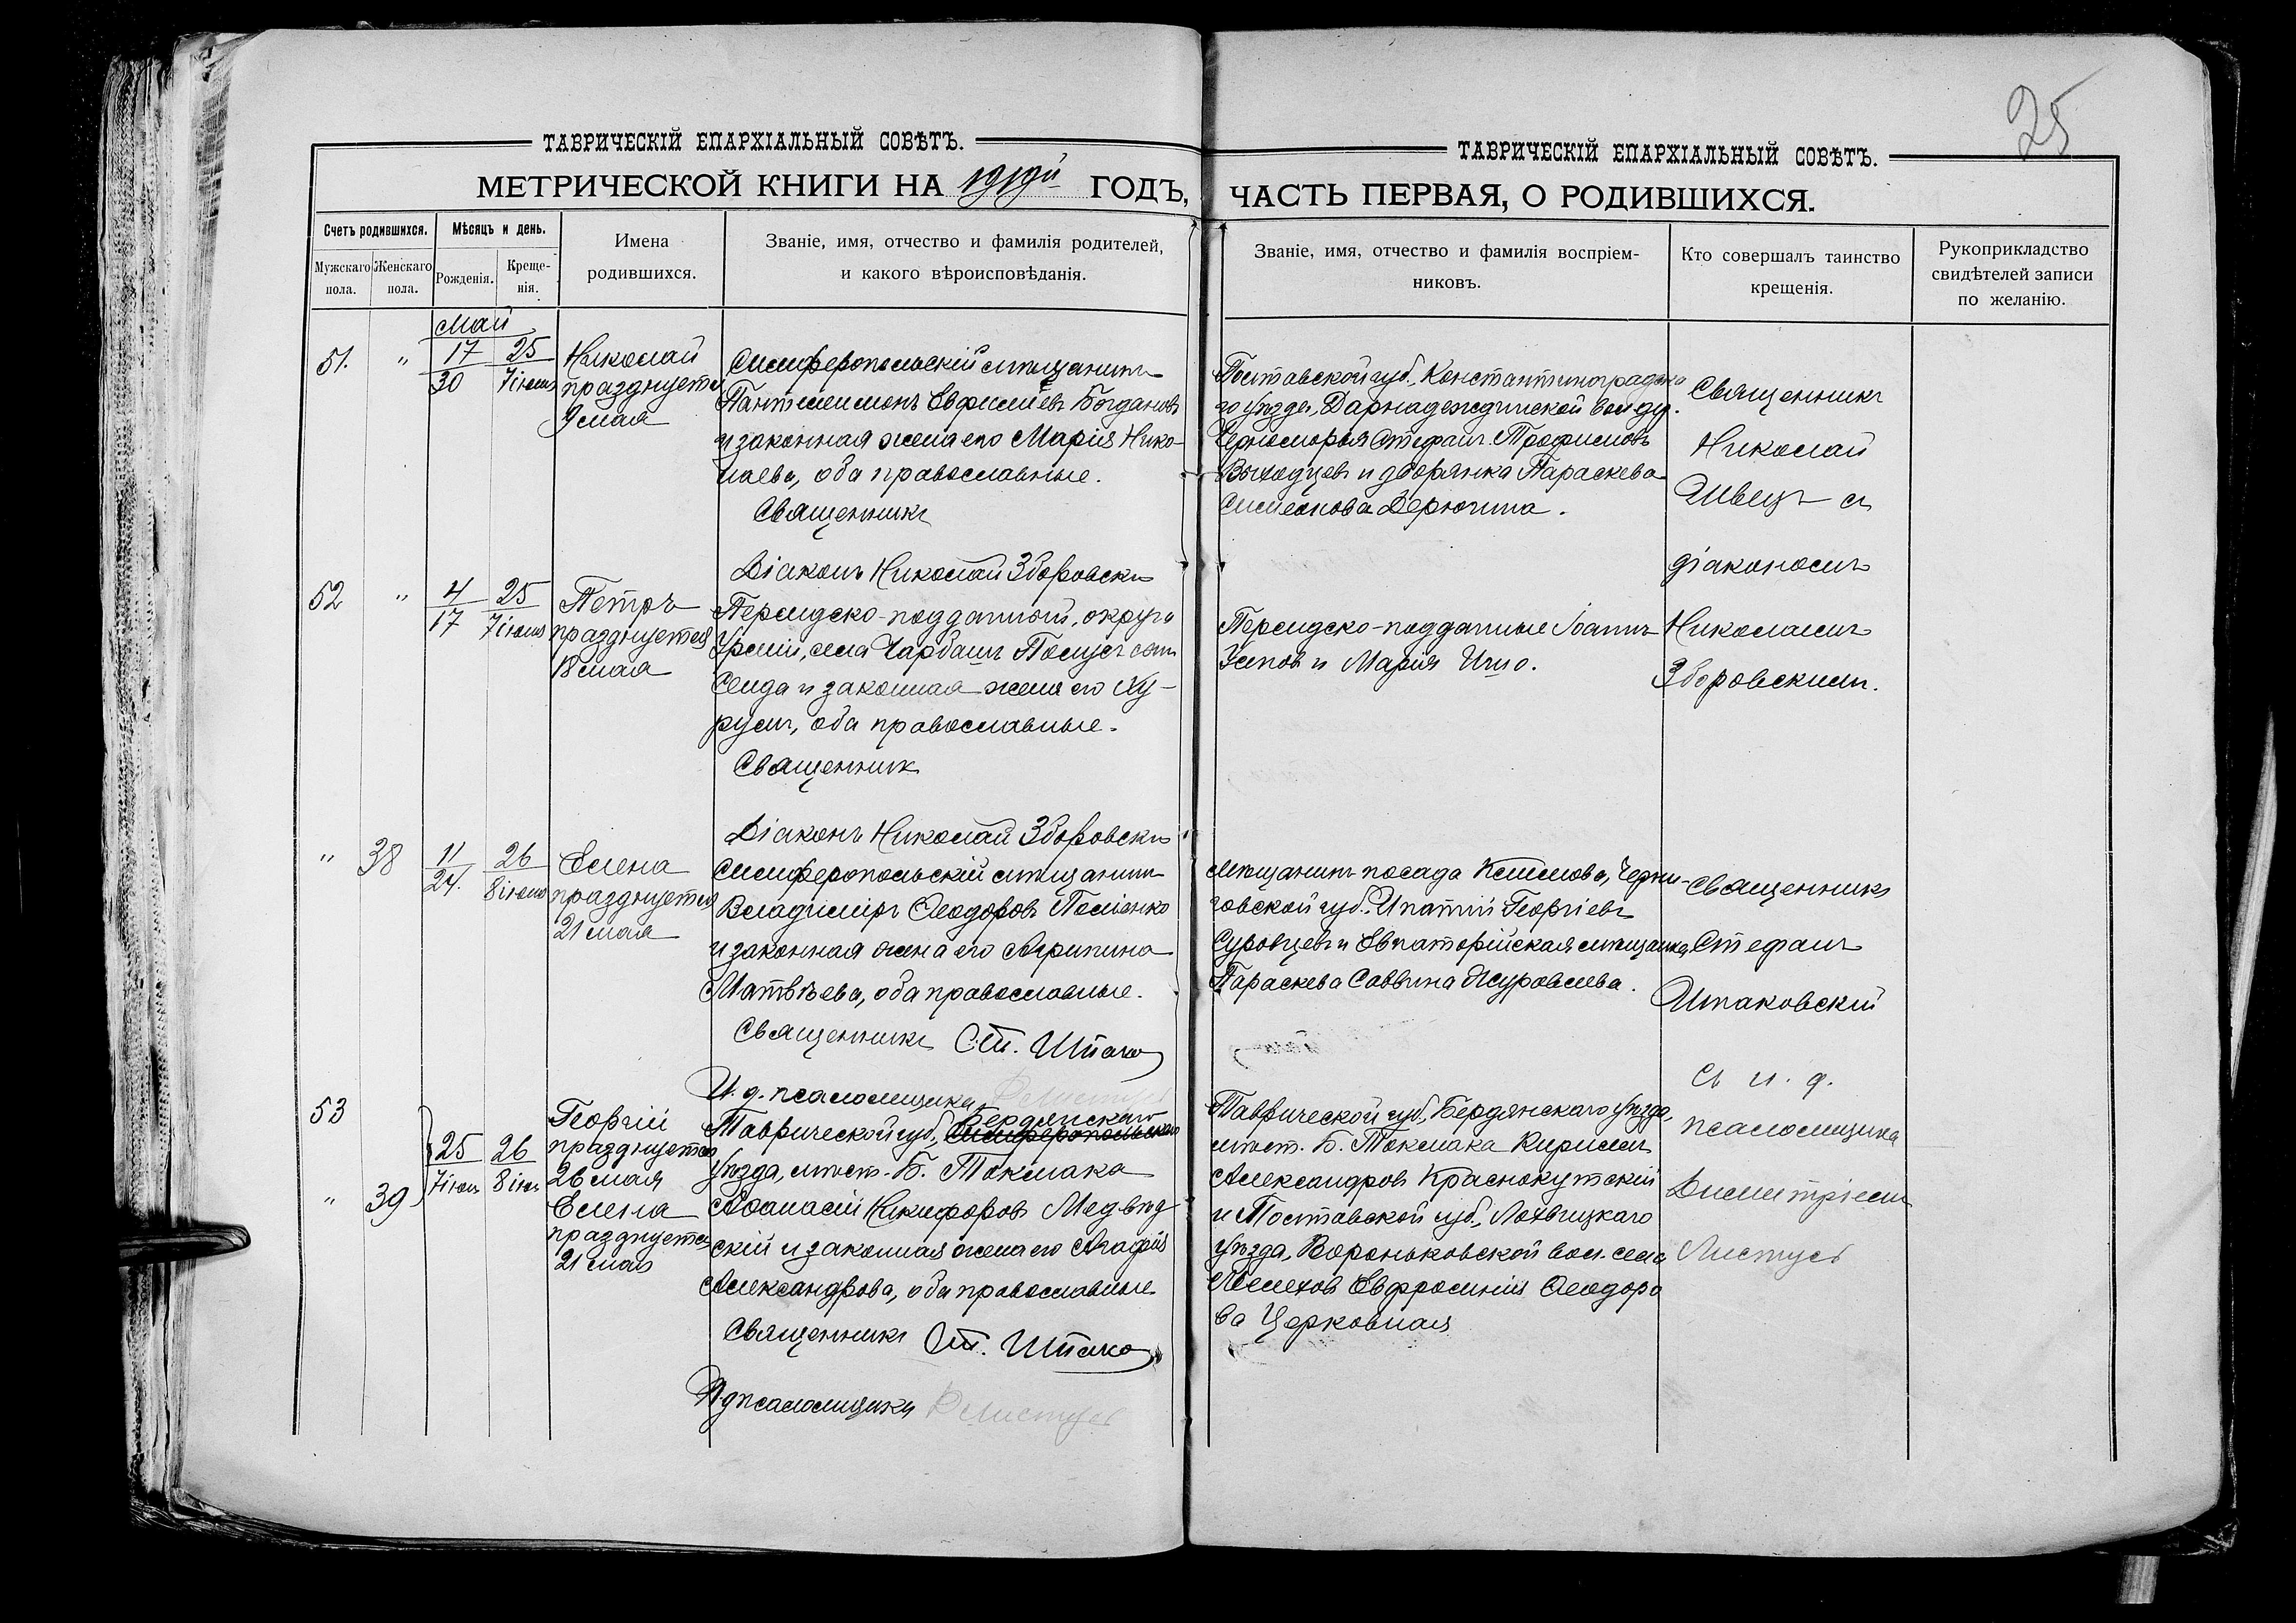 25
ТАВРИЧЕСКІЙ ЕПАРХІАЛЬНЫЙ СОВѢТЪ.
МЕТРИЧЕСКОЙ КНИГИ НА 1919й ГОДЪ,
Счетъ родившихся.
Мужскаго пола.
Женскаго пола.
Мѣсяцъ и день.
Рожденія.
Креще-
нія.
Имена
родившихся.
Званіе, имя, отчество и фамилія родителей,
и какого вѣроисповѣданія.
Май
51. " 17 25
30 7 іюня
Николай
празднуется
9 мая
Симферопольскій мѣщанинъ
Пантелеимонъ Евфиміевъ Богдановъ
и законная жена его Марія Нико-
лаева, оба православные.
Священникъ
Діаконъ Николай Зборовскій
52 " 4 25
17 7 іюня
Петръ
празднуется
18 мая
Персидско-подданный, округа
Урміи, села Чарбашъ
и законная жена его Ху-
румъ, оба православные.
Священник
Діаконъ Николай Зборовскій
" 38 11 26
24. 8 іюня
Елена
празднуется
21 мая
Симферопольскій мѣщанинъ
Владиміръ Ѳеодоровъ
и законная жена его Агрипина
Матвѣева, оба православные.
Священникъ Ст. Шпако
И. д. псаломщика
53
" 39
25 26
7 іюн 8 іюн
Георгій
празднуется
26 мая
Елена
празднуется
21 мая
Таврической губ., Бердянскаго Симферопольскаго
уѣзда, мѣст. Б. Токмака
Аѳанасій Никифоровъ Медвѣд-
скій и законная жена его Агафія
Александрова, оба православные
Священникъ Ст. Шпако
И.д псаломщика Д Листуев
ТАВРИЧЕСКІЙ ЕПАРХІАЛЬНЫЙ СОВѢТЪ.
ЧАСТЬ ПЕРВАЯ, О РОДИВШИХСЯ.
Званіе, имя, отчество и фамилія воспріем-
никовъ.
Кто совершалъ таинство
крещенія.
Рукоприкладство
свидѣтелей записи
по желанію.
Полтавской губ., Константиноградска
го уѣзда, Дарнадеждинской вол. дер.
Черноморья Стефанъ Трофимовъ
Выходцевъ и дворянка Параскева
Симеонова Дерюгина.
Персидско-подданные Іоаннъ
и Марія
Мѣщанинъ посада Климова, Черни-
говской губ., Ипатій Георгіевъ
Суровцевъ и Евпаторійская мѣщанка
Параскева Саввина Журавлева.
Таврической губ., Бердянскаго уѣзда,
мѣст. Б. Токмака Кириллъ
Александровъ Краснокутскій
и Полтавской губ., Лохвицкаго
уѣзда, Вороньковской вол. села
Евфросинія Ѳеодоро
ва Церковная
Священникъ
Николай
Швецъ съ
діакономъ
Николаемъ
Зборовскимъ.
Священникъ
Стефанъ
Шпаковскій
съ и. д.
псаломщика
Димитріемъ